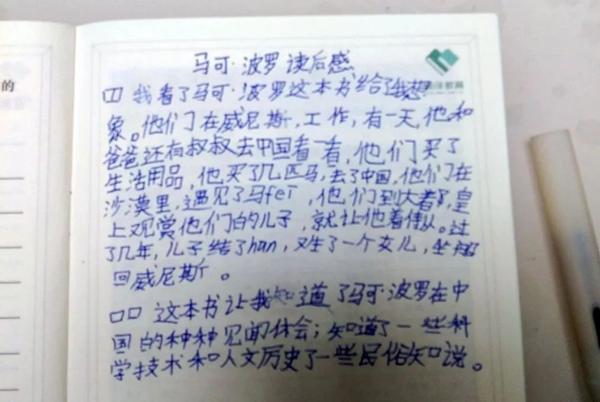 马可·波罗读后感
口口我看了马可·波罗这本书给了我想
象。他们在威尼斯,工作,有一天,他和
爸爸还有叔叔去中国看一看,他们买了
生活用品,他买了几匹马,去了中国,他们在
沙漠里,遇见了马fei,他们到大者了,皇
上观赏他们的儿子,就让他着。过
了几年,儿子结了han,又生了一个女儿,坐船
回威尼斯。
口口这本书让我知道了马可·波罗在中
国的种种见闻体会;知道了一些科
学技术和人文历史了一些民俗知识。
的
教育